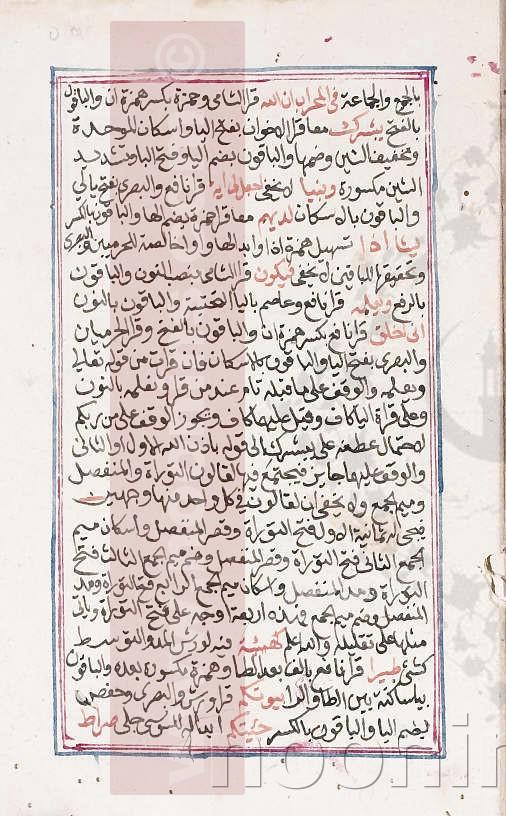 بالجمع والجماعة في المحراب ان الله قرا الشامي وحمزة بكسر همزة ان والباقون
بالفتح يبشرك معا قرا الاخوان بفتح اليا واسكان الموحدة
وتخفيف الشين وضمها والباقون بضم اليا وفتح البا وتشديد
الشين مكسورة ونبيا لا يخفى اجعل لي اية قرا نافع والبصري بفتح يا لي
والباقون بالاسكان لديهم معا قرا حمزة بضم الها والباقون بالكسر
يشا اذا تسهيل همزة اذا وابدالها واوا خالصة للحرميين والبصري
وتحقيقها للباقين لا يخفى فيكون قرا الشامي بنصب النون والباقون
بالرفع ويعلمه قرا نافع وعاصم باليا التحتية والباقون بالنون
اني اخلق قرا نافع بكسر همزة ان والباقون بالفتح وقرا الحرميان
والبصري بفتح اليا والباقون بالاسكان فان قرات من قوله تعالى
ويعلمه والوقف على ما قبله تام عند من قرا ونعلمه بالنون
وعلى قراة اليا كاف وقيل عليهما كاف ويجوز الوقف على من ربكم
لاحتمال عطفه على يبشرك الى قوله باذن الله الاول او الثاني
والوقف عليهما جايز فيجتمع فيه لقالون التوراة والمنفصل
وميم الجمع ولا يخفى ان لقالون في كل واحد منها وجهين
فيجي له ثمانية الاول فتح التوراة وقصر المنفصل واسكان ميم
الجمع الثاني فتح التوراة وقصر المنفصل وضم ميم الجمع الثالث فتح
التوراة ومد المنفصل واسكان ميم الجمع الرابع فتح التوراة ومد
المنفصل وضم ميم الجمع فهذه اربعة اوجه على فتح التوراة وياتي
مثلها على تقليله والله اعلم كهيئة فيه لورش المد والتوسط
كشئ طيرا قرا نافع بالف بعد الطا وهمزة مكسورة بعده والباقون
بيا ساكنة بين الطا والرا بيوتكم قرا ورش والبصري وحفص
بضم البا والباقون بالكسر جئتكم ابداله للسوسي جلي صراط
noorin